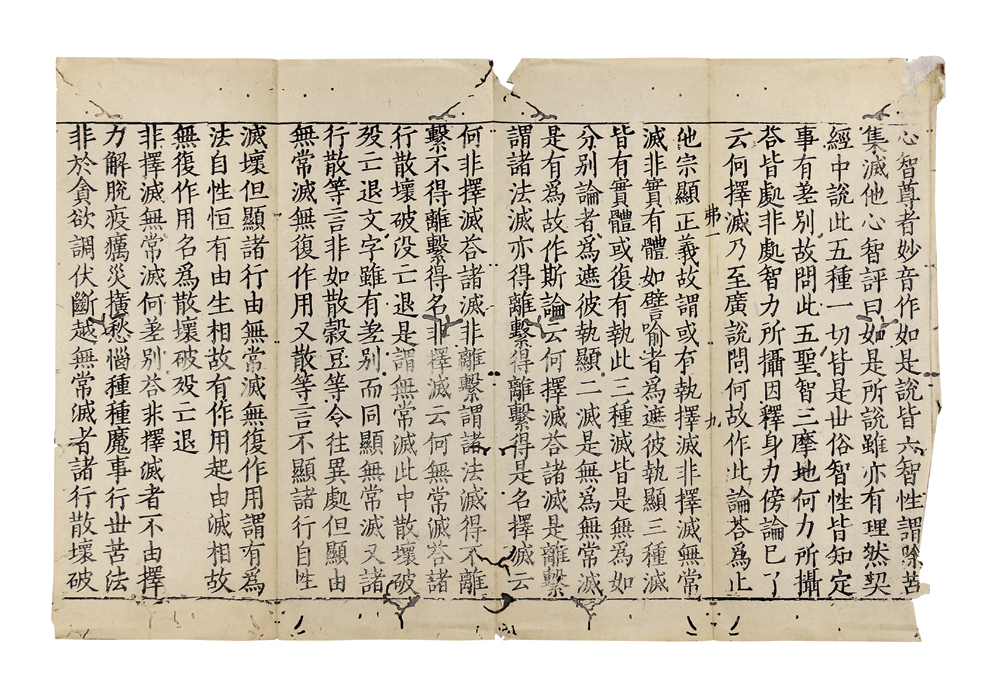 心智尊者妙音作如是說皆六智性謂除苦
集滅他心智評曰如是所說雖亦有理然契
經中說此五種一切皆是世俗智性皆知定
事有差別故問此五聖智三摩地何力所攝
荅皆處非處智力所攝因釋身力傍論已了
云何擇滅乃至廣說問何故作此論荅為止
弗一 九
他宗顯正義故謂或有執擇滅非擇滅無常
滅非實有體如譬喻者為遮彼執顯三種滅
皆有實體或復有執此三種滅皆是無為如
分別論者為遮彼執顯二滅是無為無常滅
是有為故作斯論云何擇滅荅諸滅是離繫
謂諸法滅亦得離繫得離繫得是名擇滅云
何非擇滅荅諸滅非離繫謂諸法滅得不離
繫不得離繫得名非擇滅云何無常滅荅諸
行散壞破沒亡退是謂無常滅此中散壞破
歿亡退文字雖有差別而同顯無常滅又諸
行散等言非如散穀豆等令往異處但顯由
無常滅無復作用又散等言不顯諸行自性
滅壞但顯諸行由無常滅無復作用謂有為
法自性恒有由生相故有作用起由滅相故
無復作用名為散壞破歿亡退
非擇滅無常滅何差別荅非擇滅者不由擇
力解脫疫癘災橫愁惱種種魔事行世苦法
非於貪欲調伏斷越無常滅者諸行散壞破